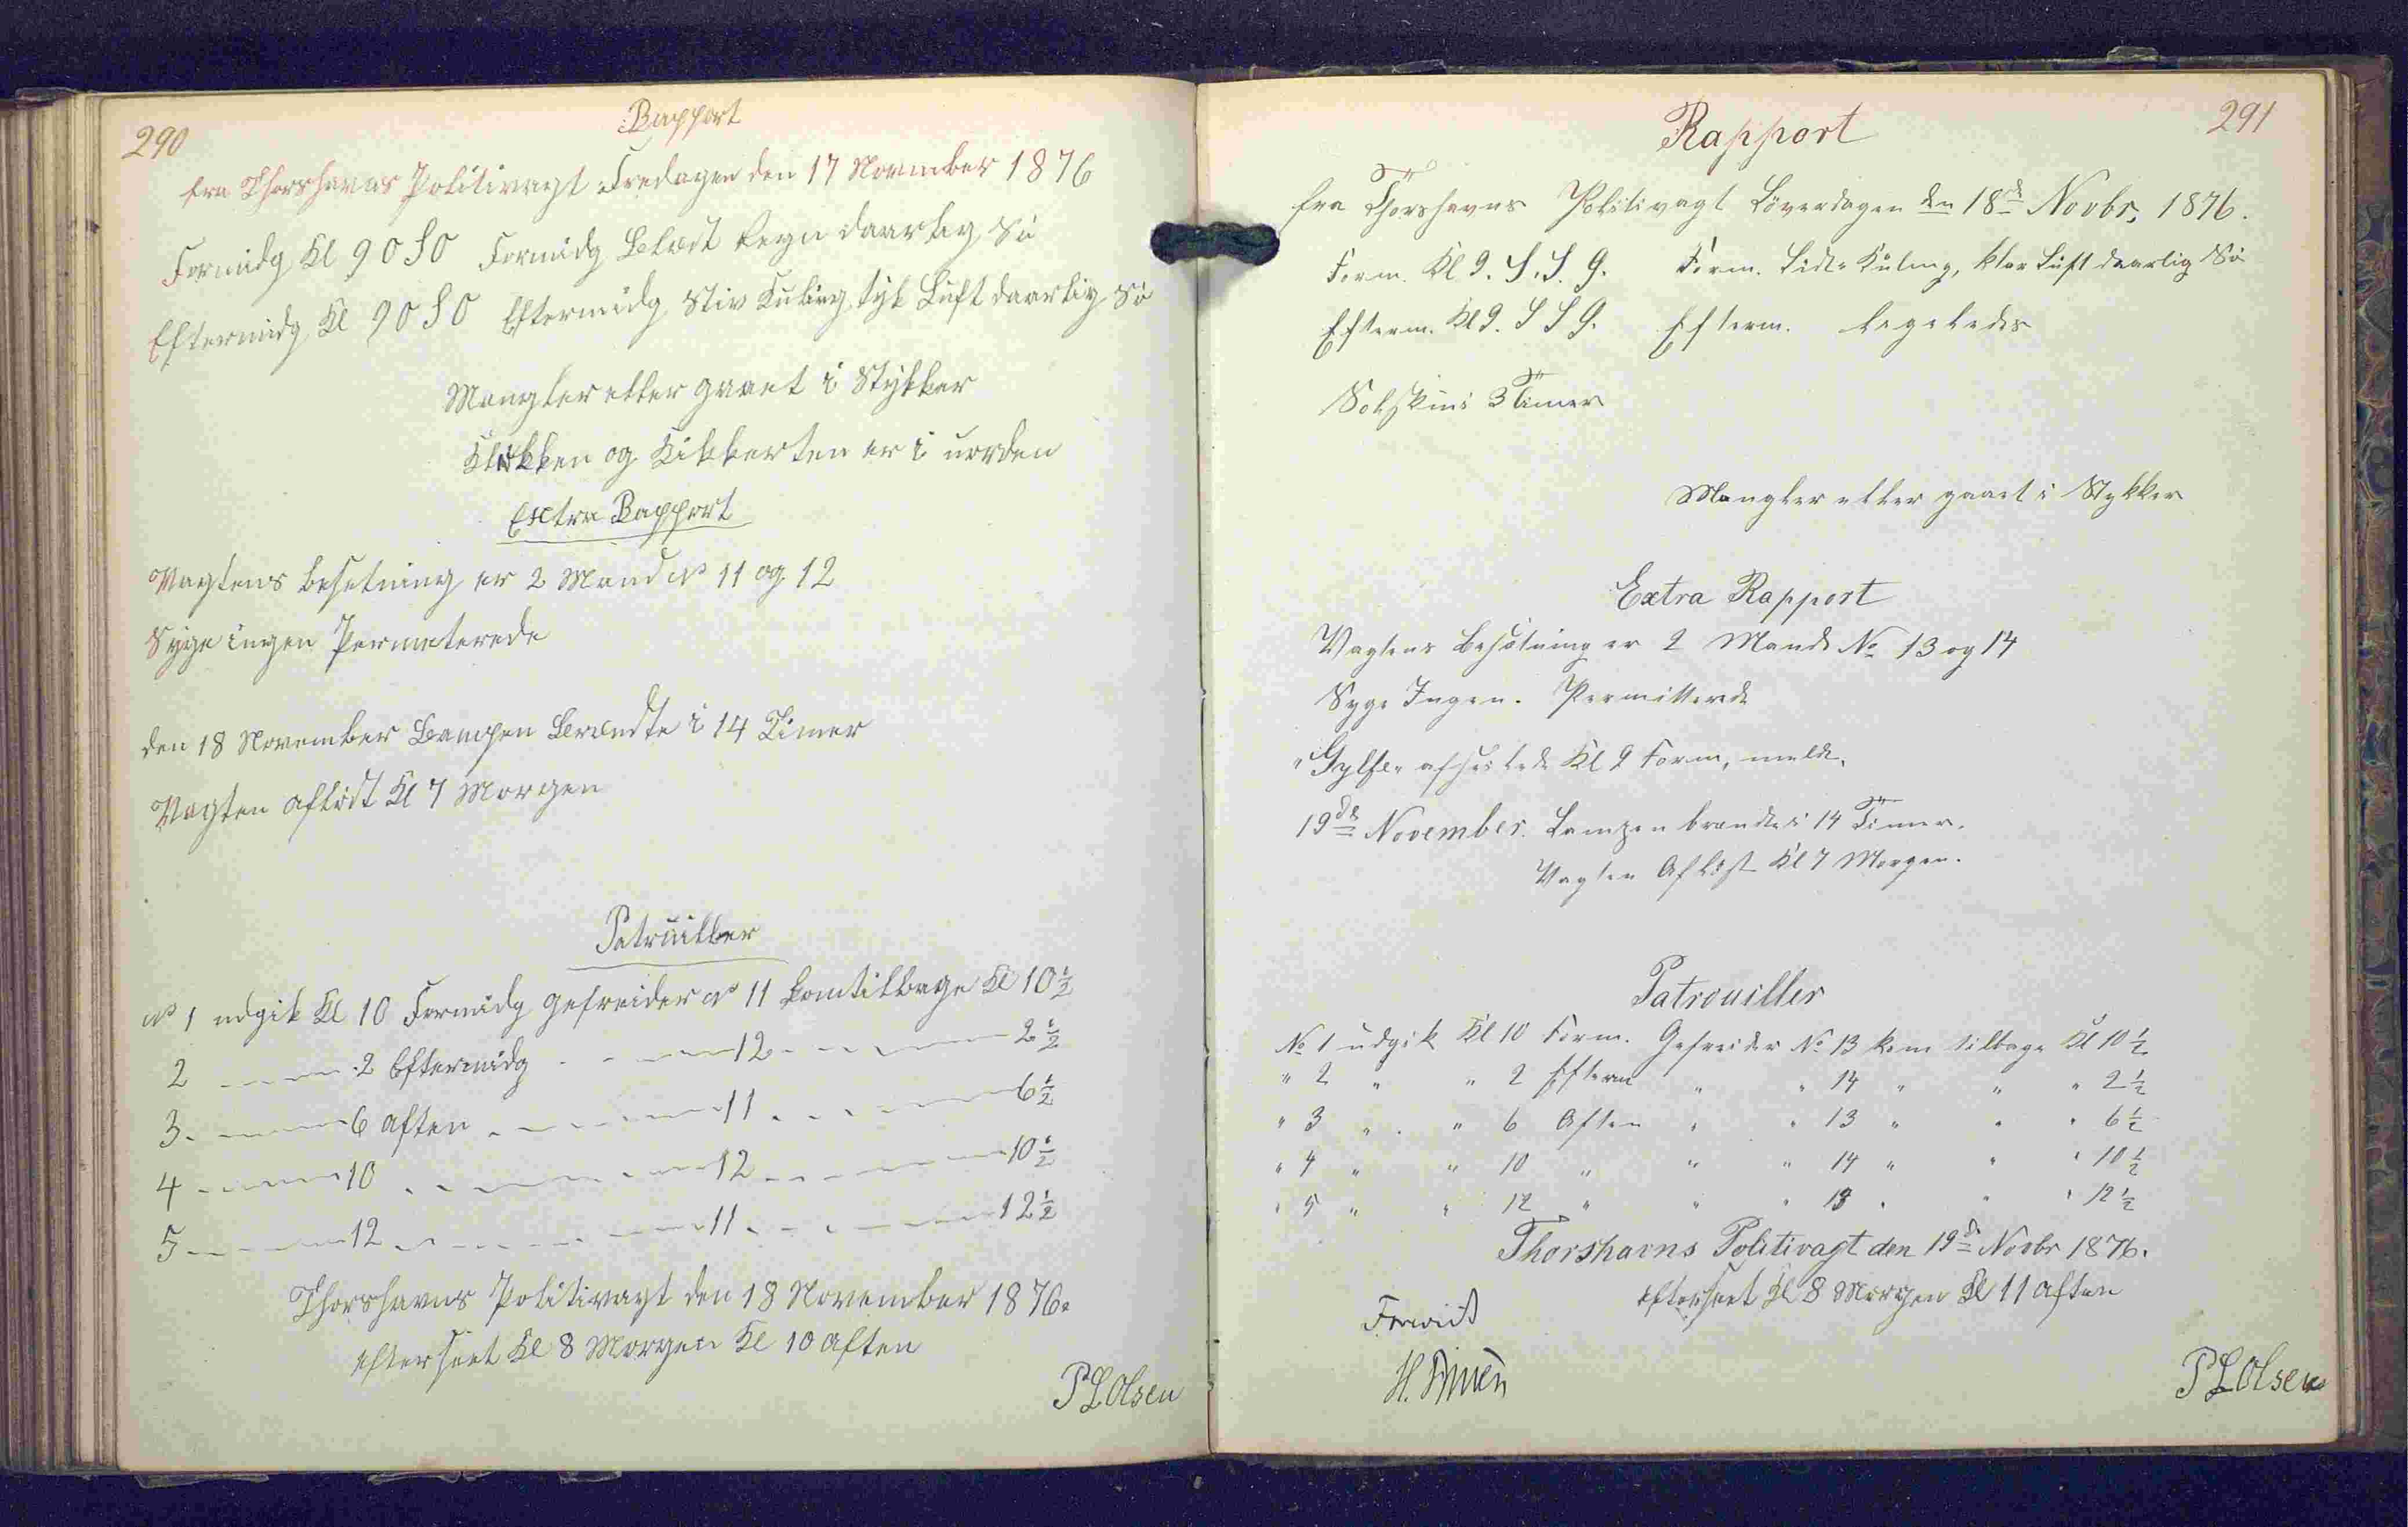 290
Rapport
fra Thorshavns Politivagt Fredagen den 17 November 1876
Formidg Kl 9 O S O Formidg Blæst Regn daarlig Sö
Eftermidg Kl 9 O S O Eftermidg Stiv Kuling tyk Luft daarlig Sö
Mangler eller gaaet i Stykker
Klokken og Kikkerten er i uorden
Extra Rapport
Vagtens besetning er 2 Mand No 11 og 12
Syge ingen Permeterede
den 18 November Lampen Brændte i 14 Timer
Vagten aflöst Kl 7 Morgen
Patruiller
No 1 udgik Kl 10 Formidg gefreider No 11 kom tilbage Kl 10 1/2
2 2 Eftermidg 12 2 1/2
3 6 aften 11 6 1/2
4 10 12 10 1/2
5 12 11 12 1/2
Thorshavns Politivagt den 18 November 1876.
efterseet Kl 8 Morgen Kl 10 aften
P L Olsen
291
Rapport
fra Thorshavns Politivagt Löverdagen den 18de Novbr. 1876.
Form. Kl 9. S. S. O. Form. Kuling, klar Luft daarlig Sö
Efterm. Kl 9. S S O. Efterm. ligeledes
Solskin i 3 Timer
Mangler eller gaaet i Stykker
Extra Rapport
Vagtens Besætning er 2 Mand No 13 og 14
Syge Ingen. Permitterede
"Gylfe" Kl 9 Form,
19de November. Lampen brændte i 14 Timer.
Vagten Aflöst Kl 7 Morgen.
Patrouiller
No 1 udgik Kl 10 Form. Gefreider No 13 kom tilbage Kl 10 1/2
" 2 " " 2 Efterm " " 14 " " " 2 1/2
" 3 " " 6 Aften " " 13 " " " 6 1/2
" 4 " " 10 " " " 14 " " " 10 1/2
" 5 " " 12 " " " 13 " " " 12 1/2
Thorshavns Politivagt den 19de Novbr 1876.
efterseet Kl 8 Morgen Kl 11 aften
P L Olsen